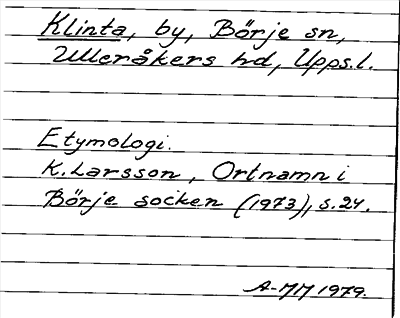 Klinta, by, Börje sn,
Ulleråkers hd, Upps.l.
Etymologi.
K. Larsson, Ortnamn i
Börje socken (1973), s. 24.
A-MM 1979.